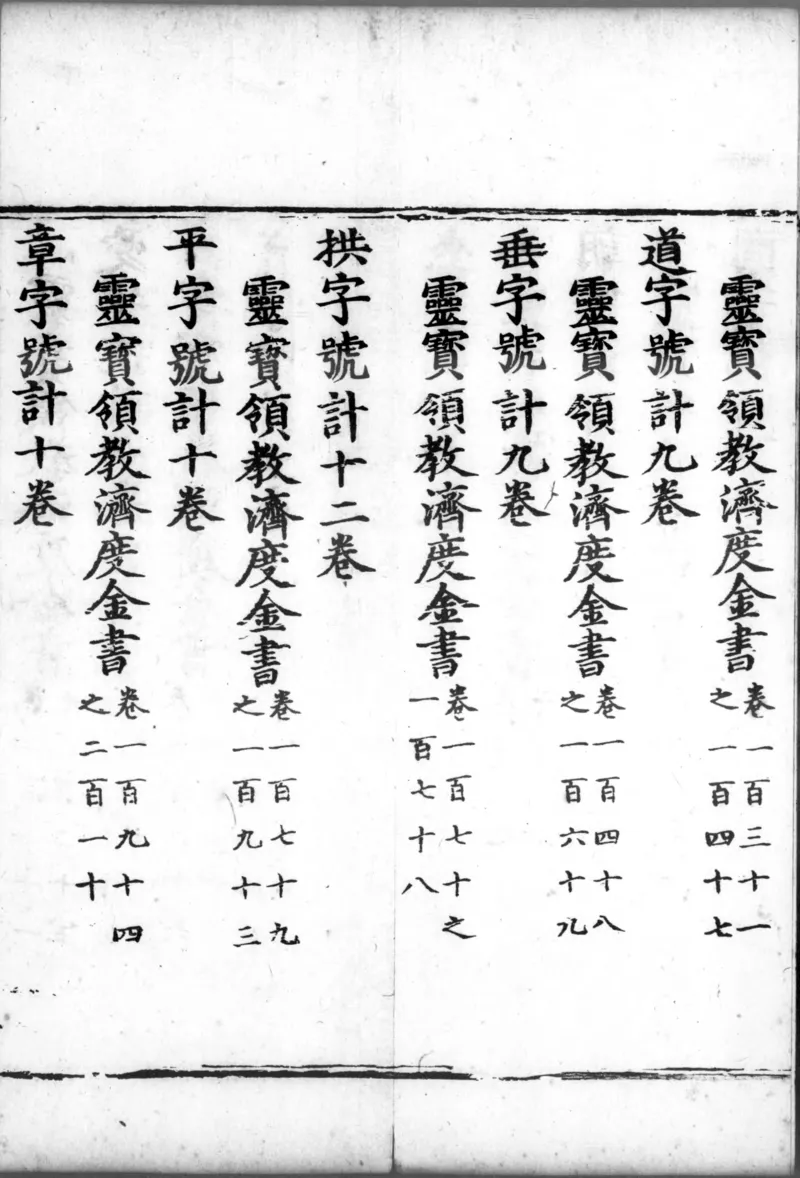 靈寶領教濟度金書卷一百三十一之一百四十七
道字號計九卷
靈寶領教濟度金書卷一百四十八之一百六十九
垂字號計九卷
靈寶領教濟度金書卷一百七十之一百七十八
拱字號計十二卷
靈寶領教濟度金書卷一百七十九之一百九十三
平字號計十卷
靈寶領教濟度金書卷一百九十四之二百一十
章字號計十卷